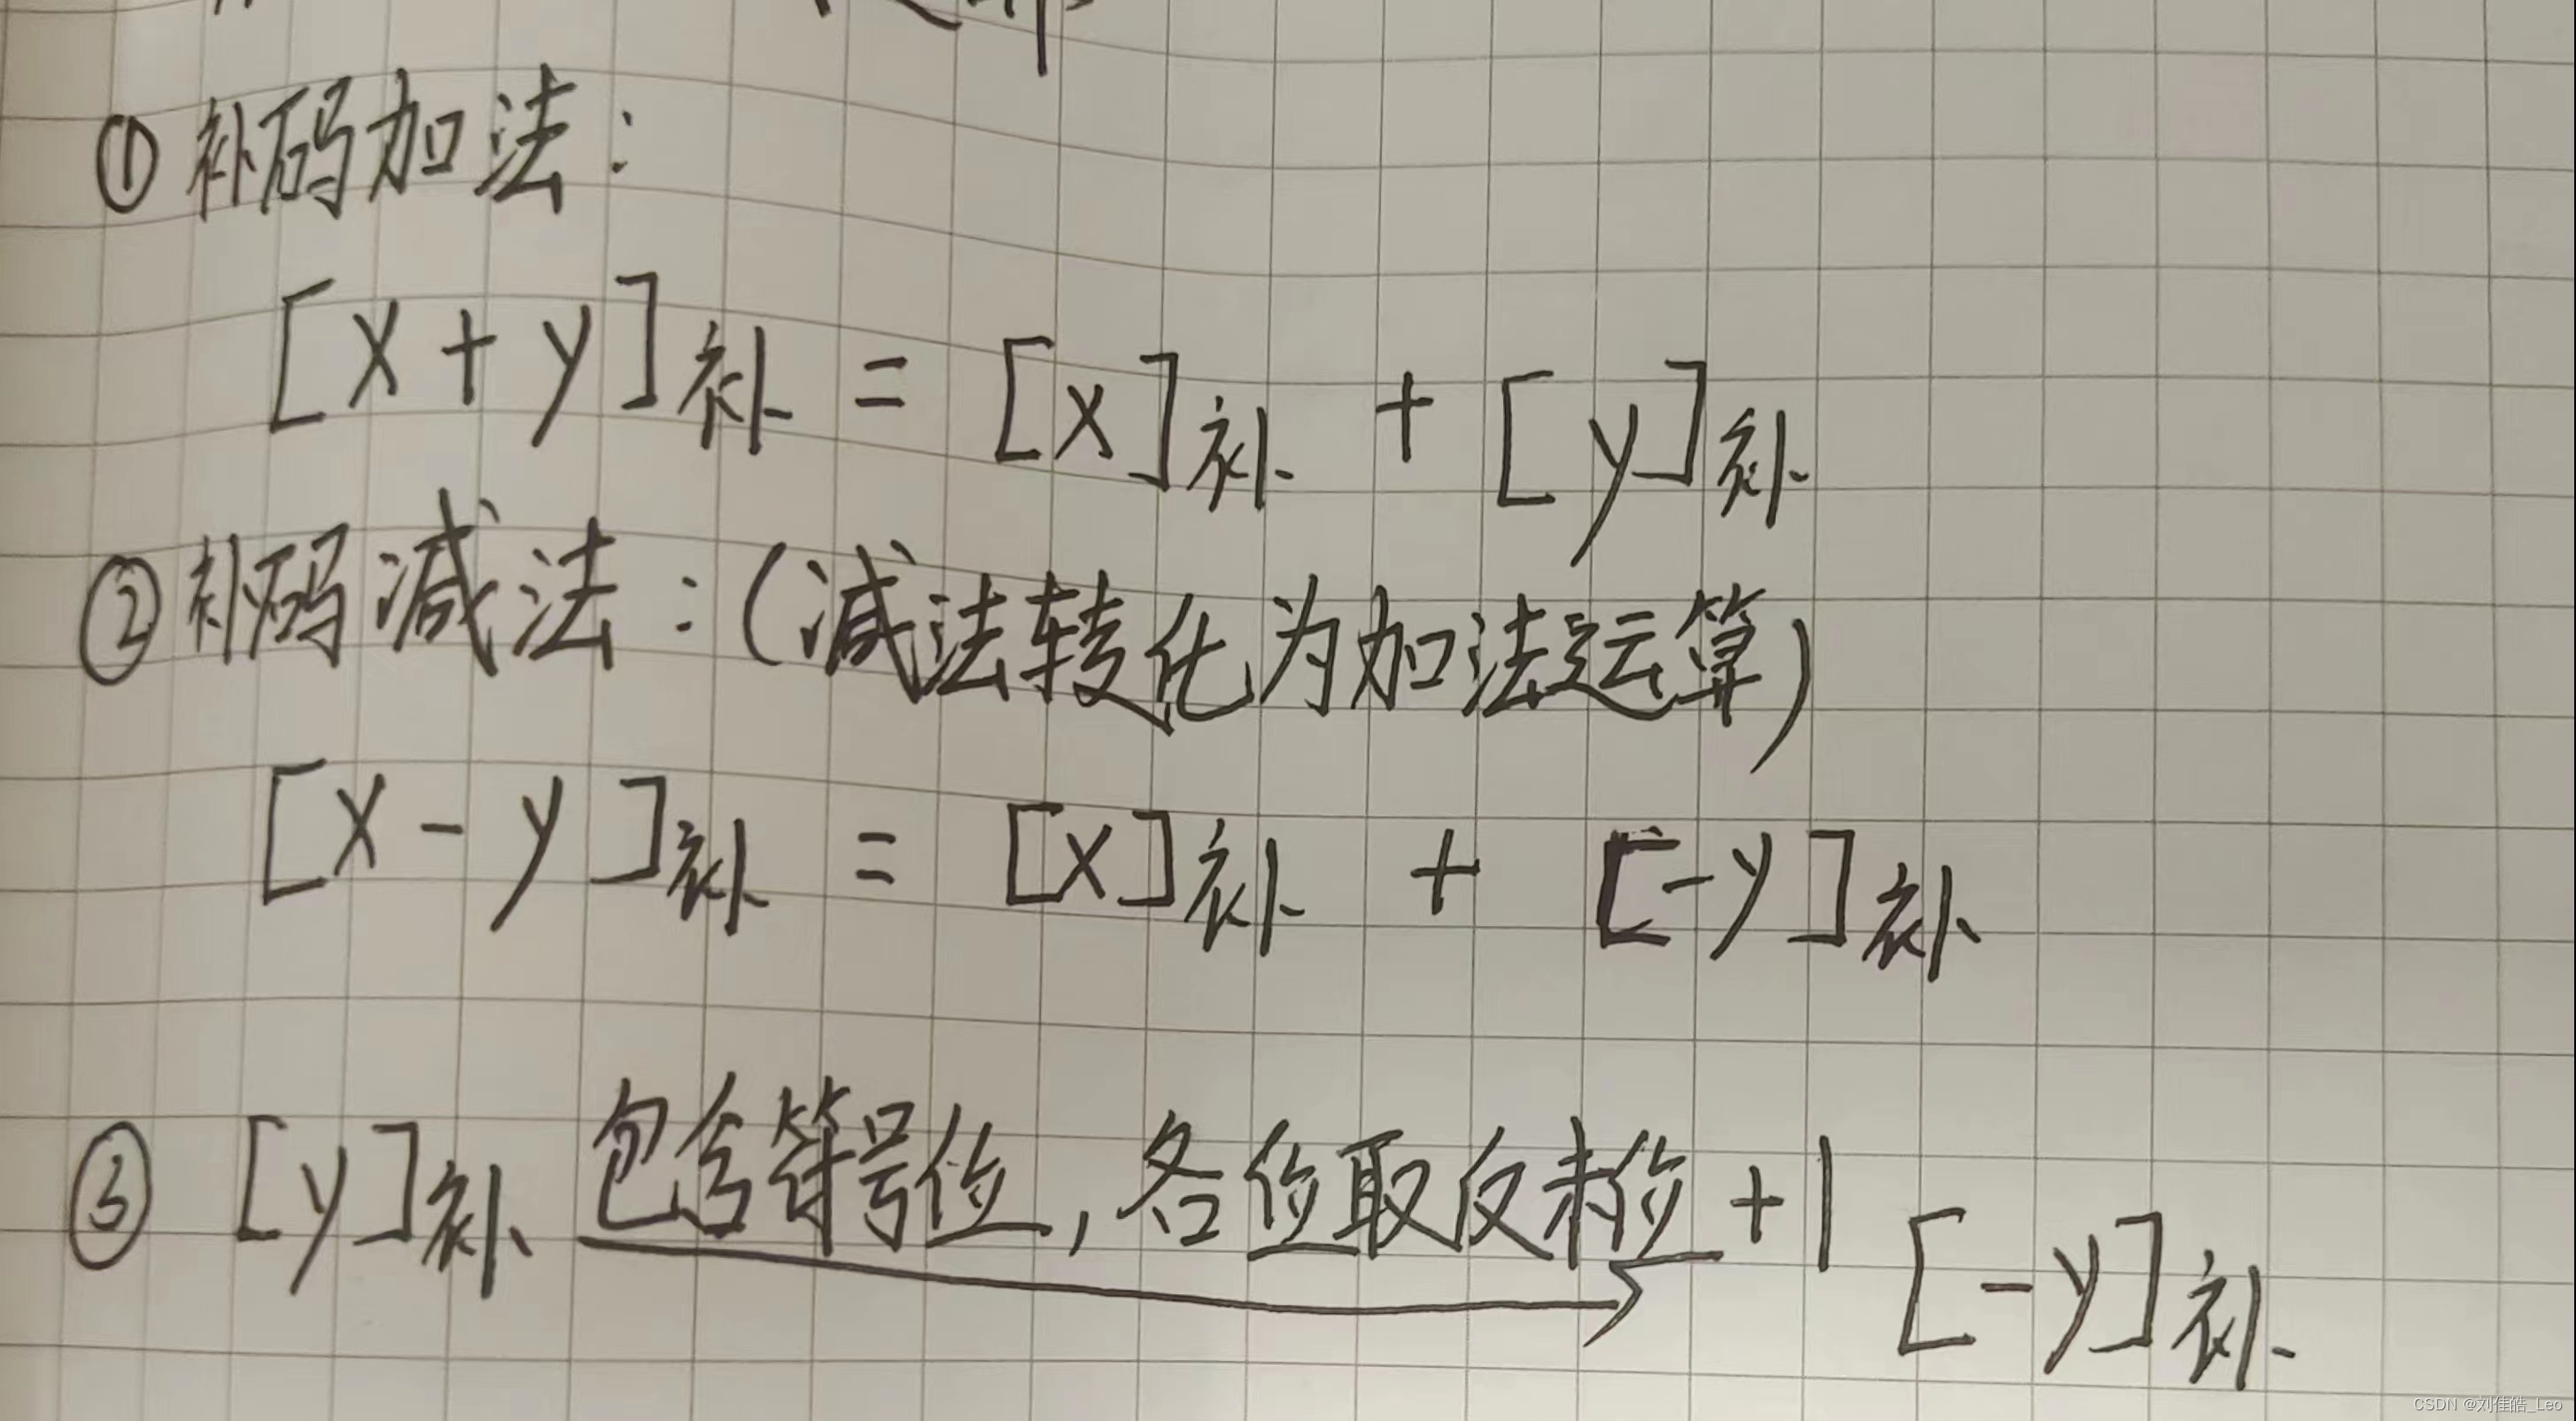 ① 补码加法:
[X+y]补 = [X]补 + [y]补
② 补码减法:(减法转化为加法运算)
[X-y]补 = [X]补 + [-y]补
③ [y]补 包含符号位,各位取反末位+1 [-y]补
CSDN @刘佳皓_Leo